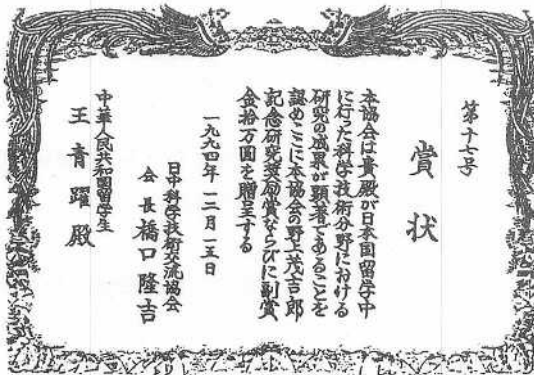 第十七号
賞状
本協会は貴殿が日本国留学中
に行った科学技術分野における
研究の成果が顕著であることを
認めここに本協会の野上茂吉郎
記念研究奨励賞ならびに副賞
金拾万圓を贈呈する
一九九四年一二月一五日
日中科学技術交流協会
会長橋口隆吉
中華人民共和國留学生
王青躍殿